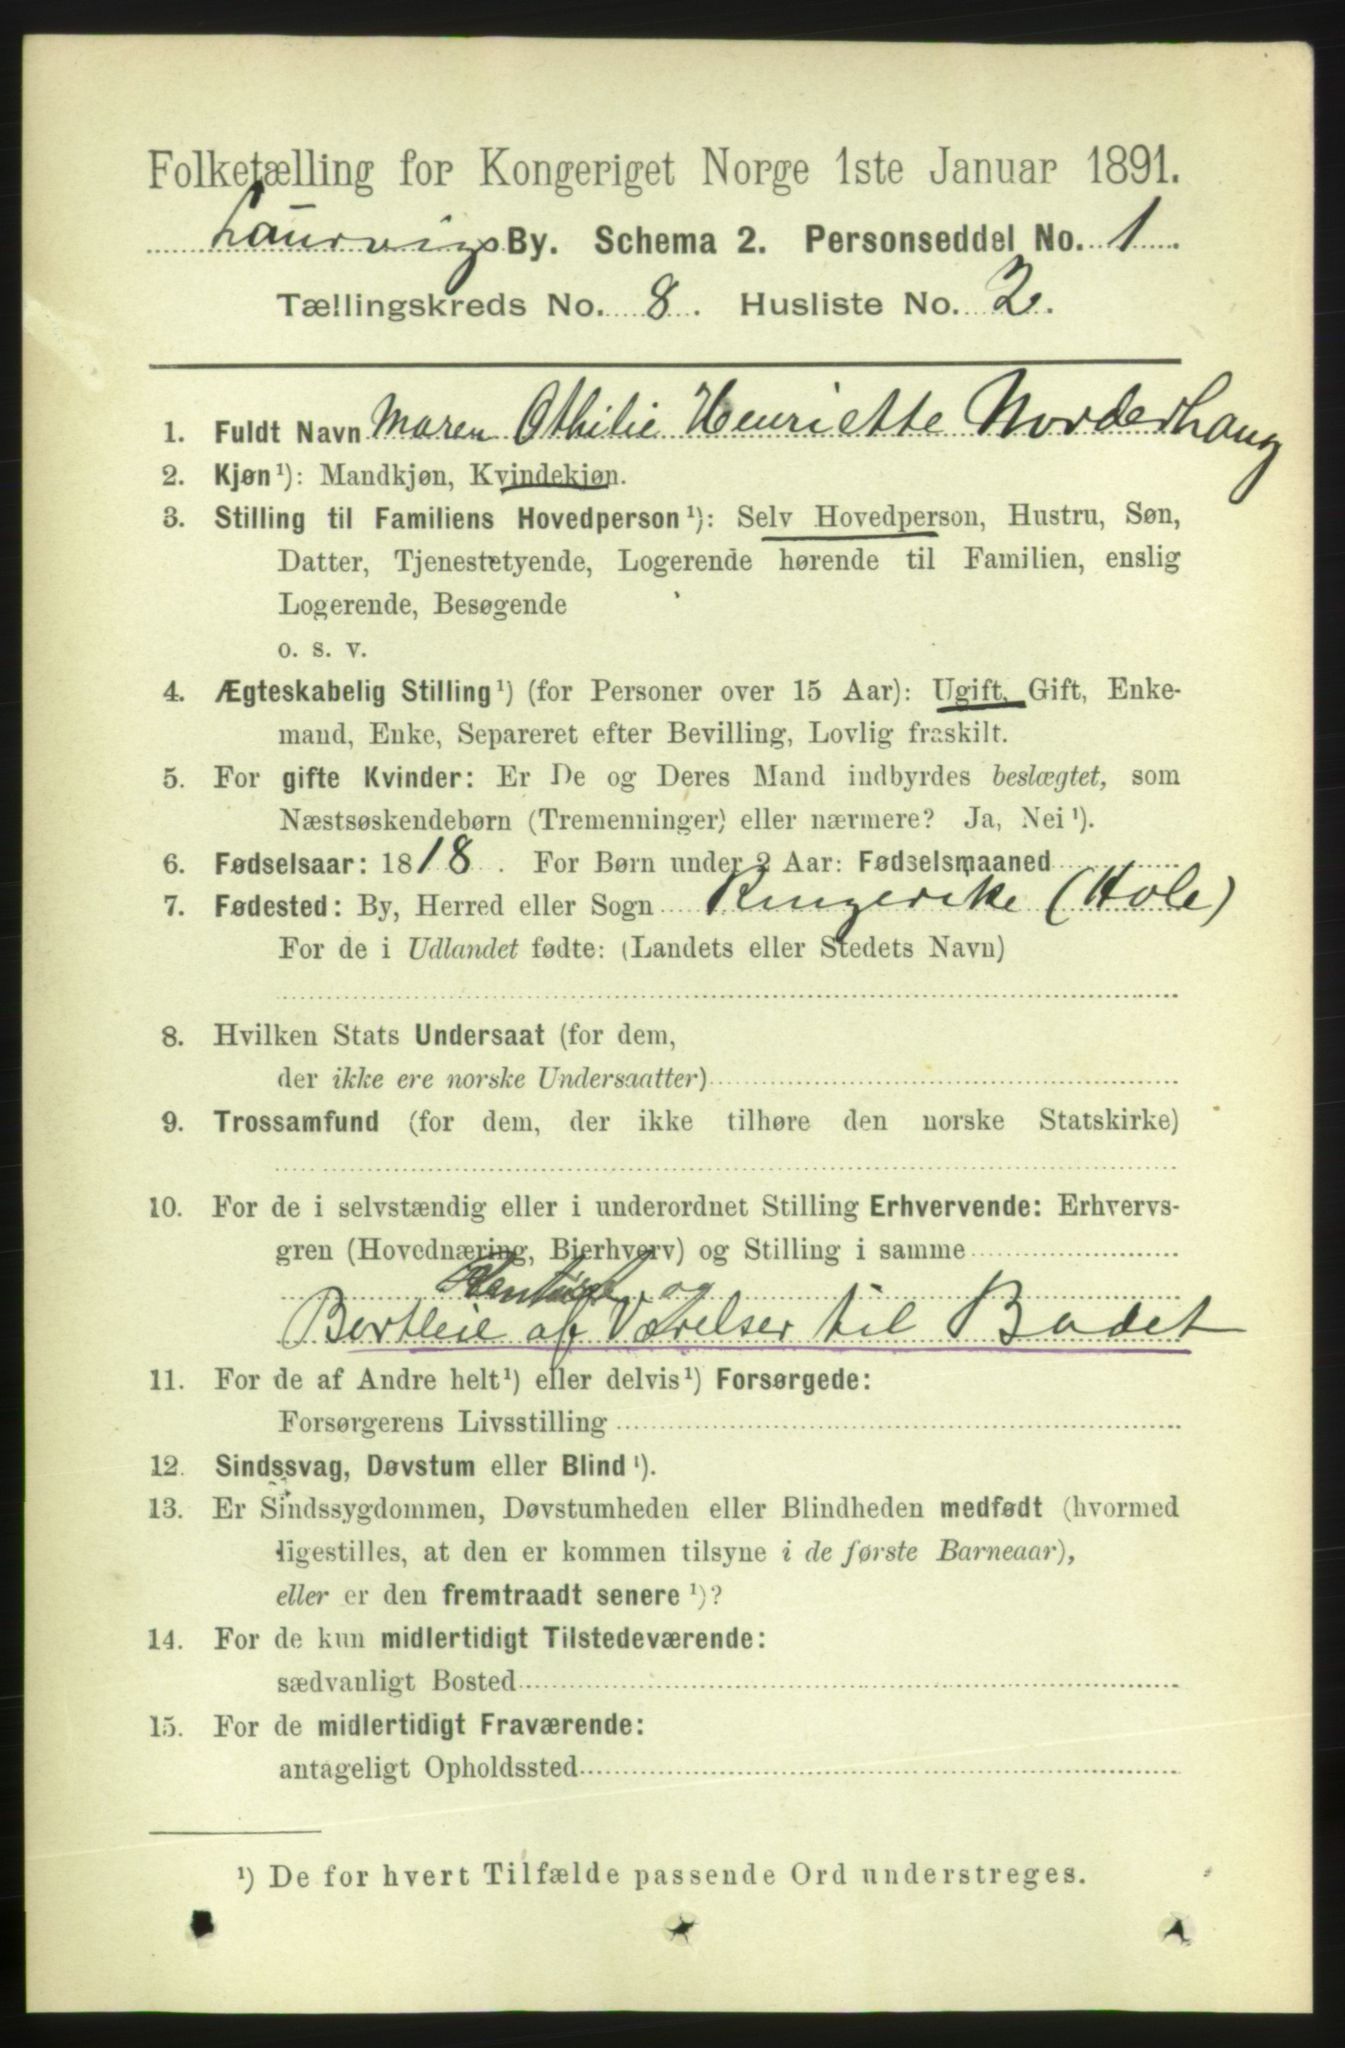 Folketælling for Kongeriget Norge 1ste Januar 1891.
Laurvigs By. Schema 2. Personseddel No. 1
Tællingskreds No. 8. Husliste No. 2.
1. Fuldt Navn Maren Othilie Henriette Norderhaug
2. Kjøn¹): Mandkjøn, Kvindekjøn.
3. Stilling til Familiens Hovedperson¹): Selv Hovedperson, Hustru, Søn,
Datter, Tjenestetyende, Logerende hørende til Familien, enslig
Logerende, Besøgende
o. s. v.
4. Ægteskabelig Stilling¹) (for Personer over 15 Aar): Ugift, Gift, Enke-
mand, Enke, Separeret efter Bevilling, Lovlig fraskilt.
5. For gifte Kvinder: Er De og Deres Mand indbyrdes beslægtet, som
Næstsøskendebørn (Tremenninger) eller nærmere? Ja, Nei¹).
6. Fødselsaar: 1818. For Børn under 2 Aar: Fødselsmaaned
7. Fødested: By, Herred eller Sogn Ringerike (Hole)
For de i Udlandet fødte: (Landets eller Stedets Navn)
8. Hvilken Stats Undersaat (for dem,
der ikke ere norske Undersaatter)
9. Trossamfund (for dem, der ikke tilhøre den norske Statskirke)
10. For de i selvstændig eller i underordnet Stilling Erhvervende: Erhvervs-
gren (Hovednæring, Bierhverv) og Stilling i samme
og
Bortleie af Værelser til Badet
11. For de af Andre helt¹) eller delvis¹) Forsørgede:
Forsørgerens Livsstilling
12. Sindssvag, Døvstum eller Blind¹).
13. Er Sindssygdommen, Døvstumheden eller Blindheden medfødt (hvormed
ligestilles, at den er kommen tilsyne i de første Barneaar),
eller er den fremtraadt senere¹)?
14. For de kun midlertidigt Tilstedeværende:
sædvanligt Bosted
15. For de midlertidigt Fraværende:
antageligt Opholdssted
¹) De for hvert Tilfælde passende Ord understreges.